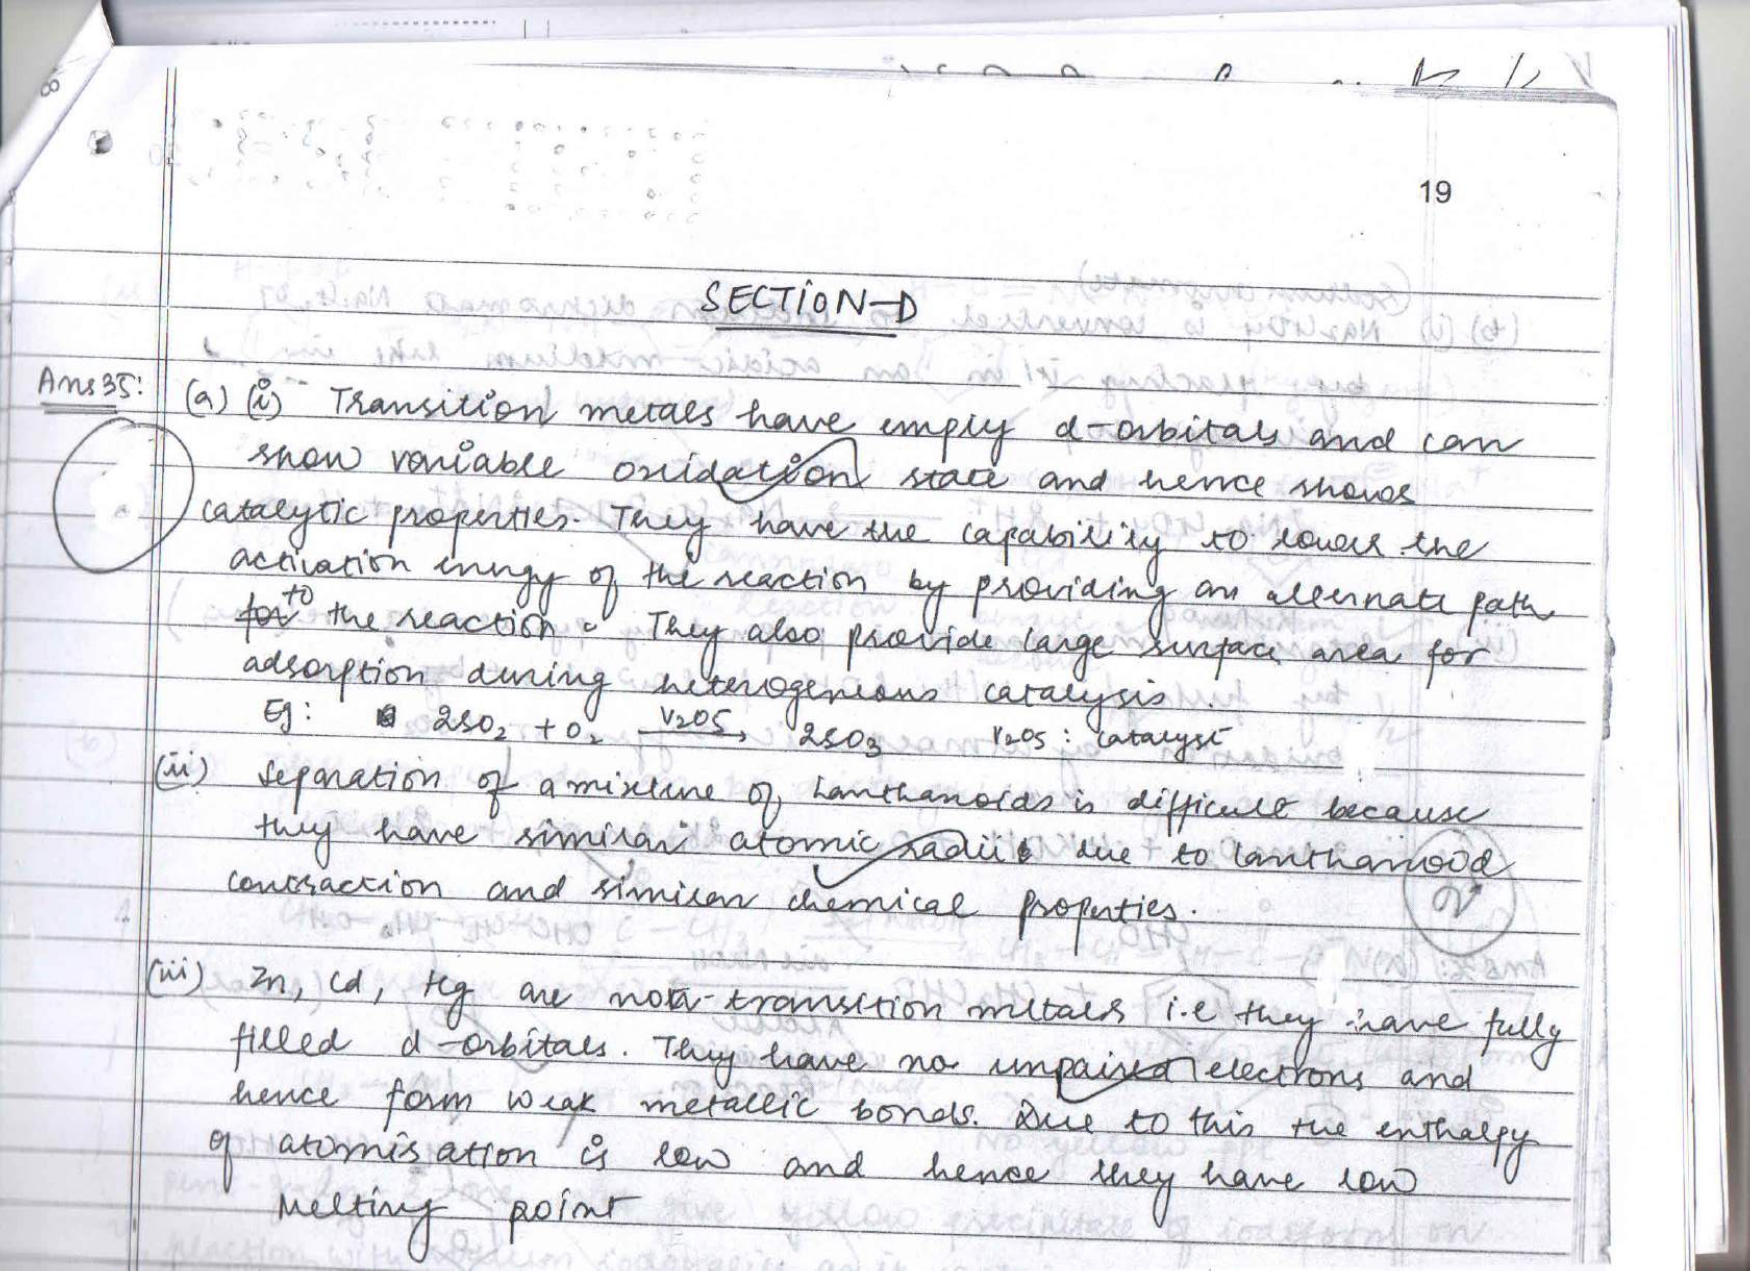 19
SECTION-D
Ans 35: (a) (i) Transition metals have empty d-orbitals and can
show variable oxidation state and hence shows
catalytic properties. They have the capability to lower the
activation energy of the reaction by providing an alternate path
to the reaction. They also provide large surface area for
adsorption during heterogeneous catalysis.
Eg: 2SO2 + O2 V2O5→ 2SO3 V2O5 : catalyst
(ii) Separation of a mixture of Lanthanoids is difficult because
they have similar atomic radii due to lanthanoid
contraction and similar chemical properties.
(iii) Zn, Cd, Hg are non-transition metals i.e they have fully
filled d-orbitals. They have no unpaired electrons and
hence form weak metallic bonds. Due to this the enthalpy
of atomisation is low and hence they have low
Melting point